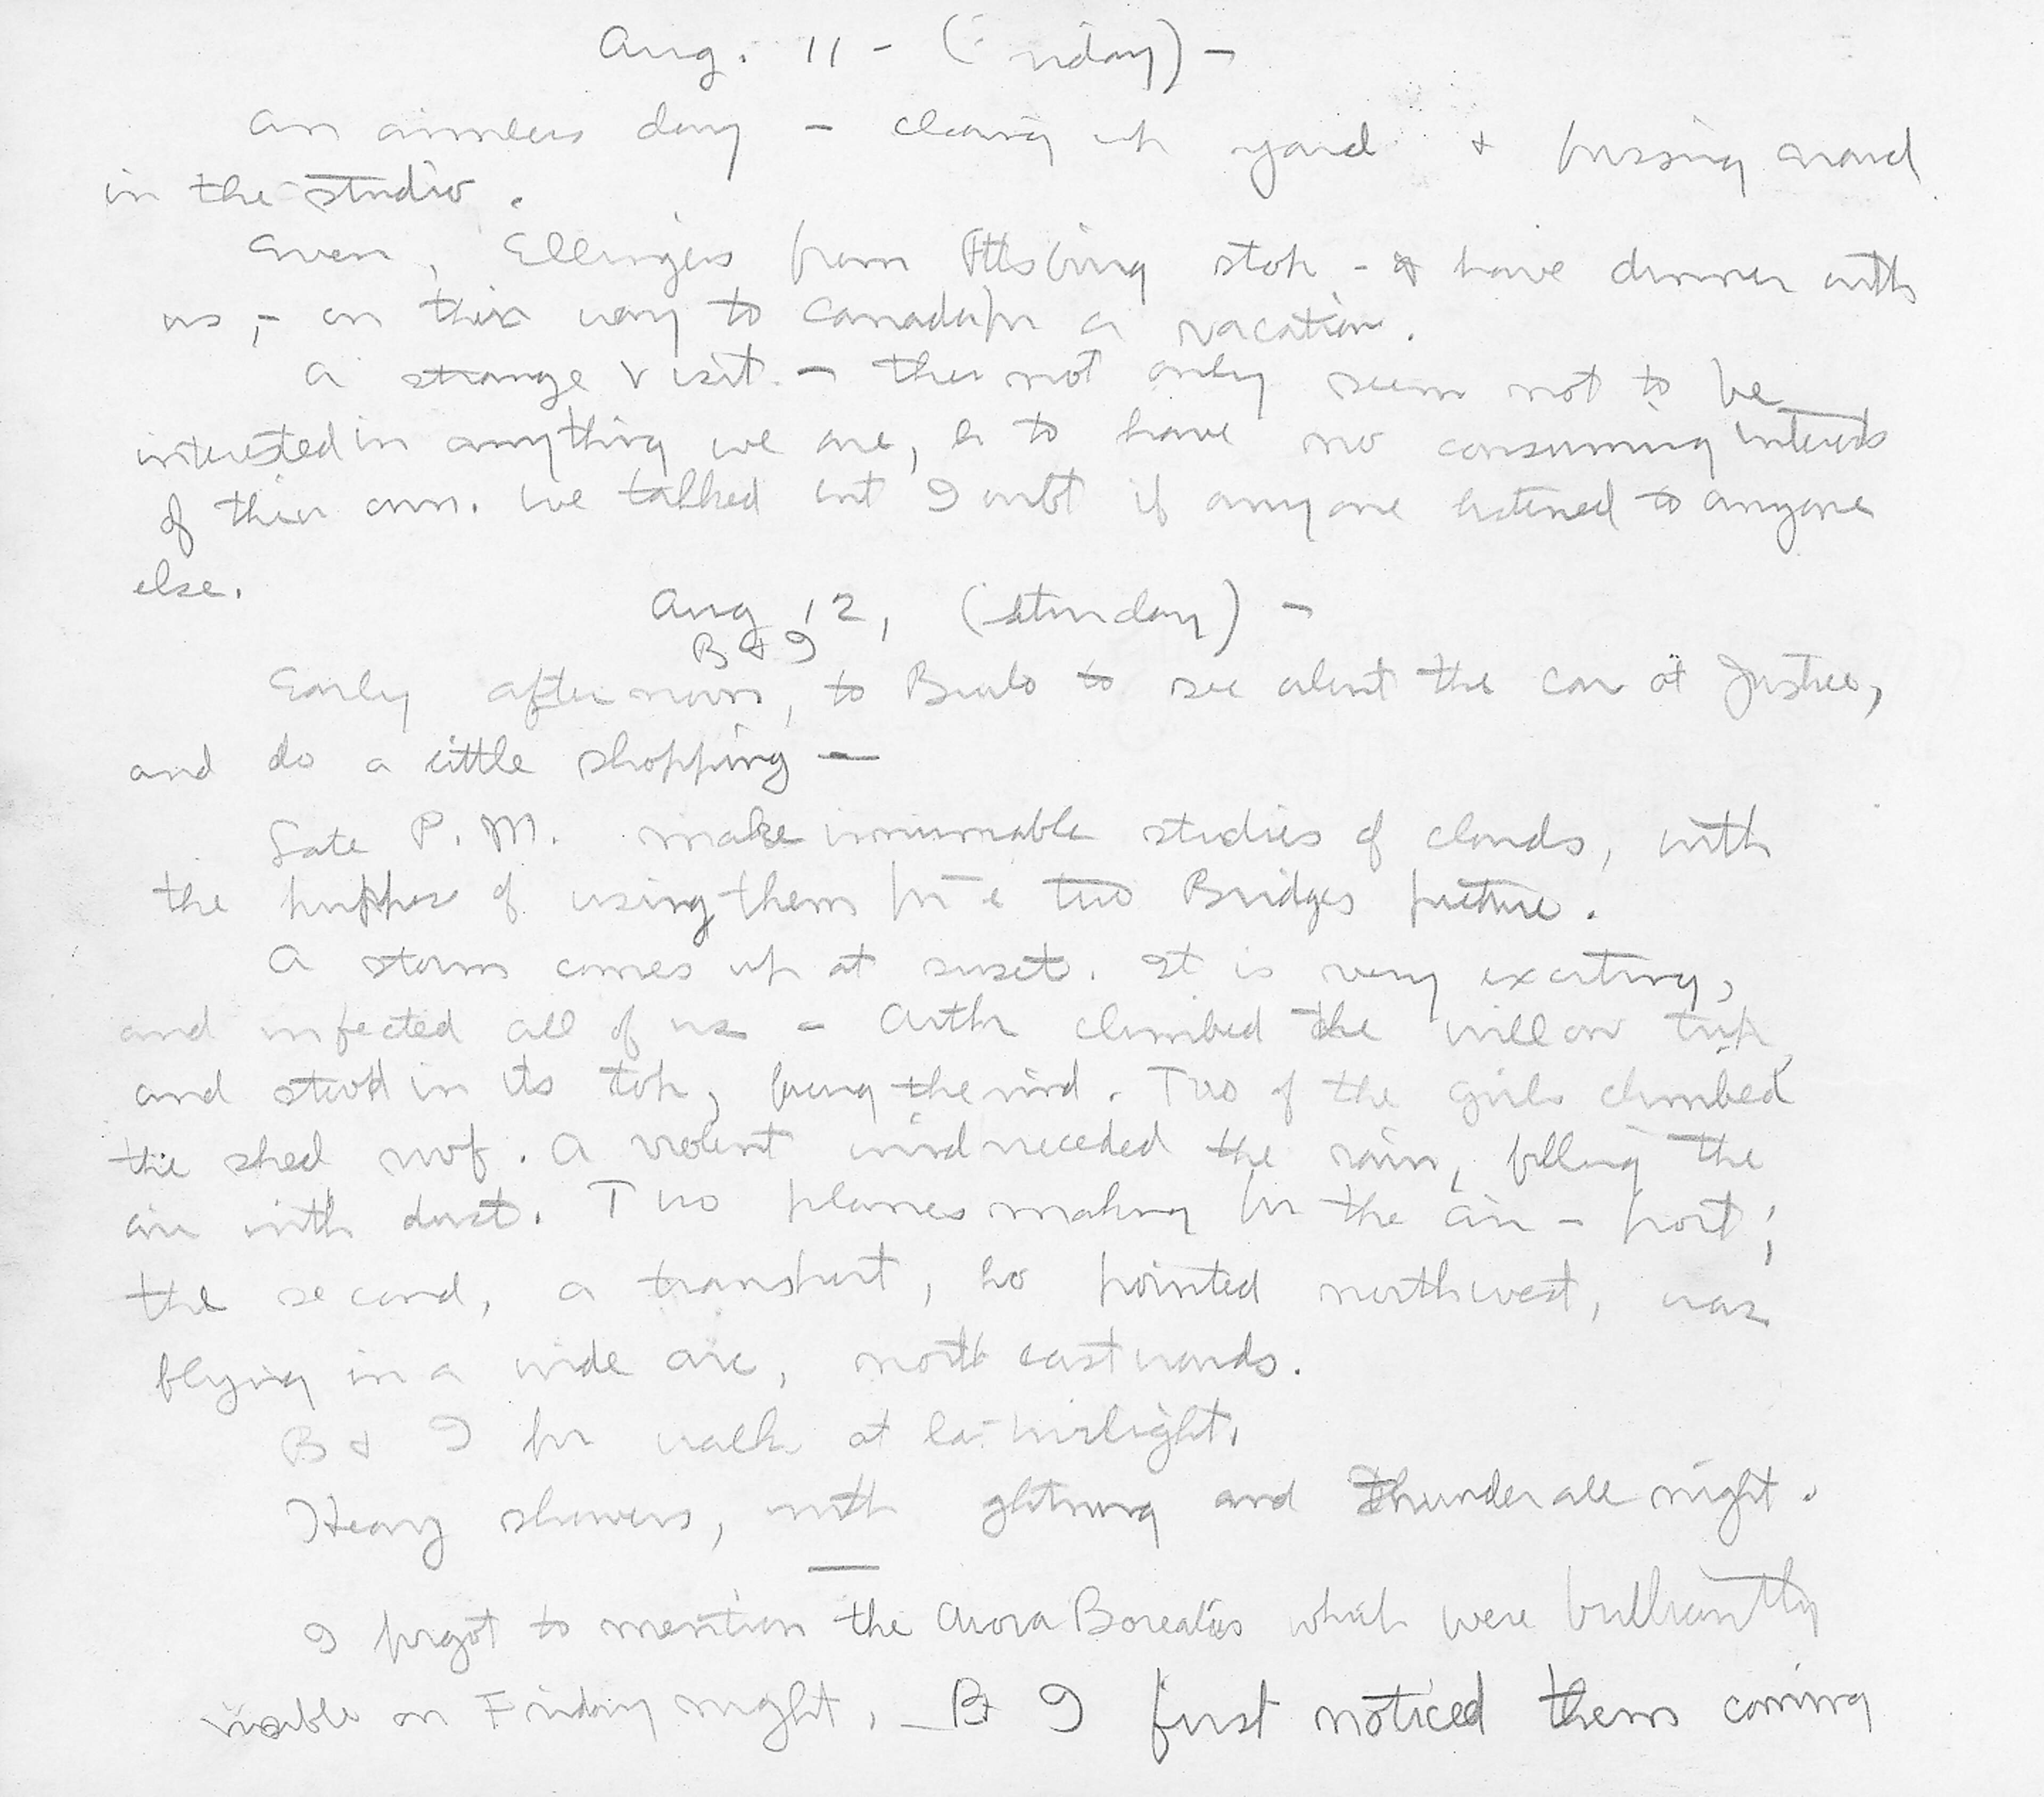 Aug. 11 - (Friday) -
An aimless day - cleaning up yard + fussing around
in the studio.
Even, Ellingers from Pittsburg stop - & have dinner with
us, - on their way to Canada for a vacation.
A strange visit. - they not only seem not to be
interested in anything we are, or to have no consuming interests
of their own. We talked but I doubt if anyone listened to anyone
else.
Aug 12, (Saturday) -
B & I
Early afternoon, to Buffalo to see about the car at Justice,
and do a little shopping -
Late P.M. make innumerable studies of clouds, with
the purpose of using them for the two Bridges picture.
A storm comes up at sunset. It is very exciting,
and infected all of us - Arthur climbed the willow tree
and stood in its top, facing the wind. Two of the girls climbed
the shed roof. A violent wind preceded the rain, filling the
air with dust. Two planes making for the air-port;
the second, a transport, pointed northwest, was
flying in a wide arc, northeastwards.
B & I for walk at late twilight.
Heavy showers, with lightning and thunder all night.
I forgot to mention the Aurora Borealis which were brilliantly
visible on Friday night. B & I first noticed them coming